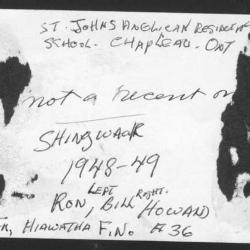 ST. JOHNS ANGLICAN RESIDENT
SCHOOL. CHAPLEAU. ONT
not a recent on
SHINGWAUK
1948-49
LEFT RIGHT.
RON, BILL HOWARD
HIAWATHA F.N. #36